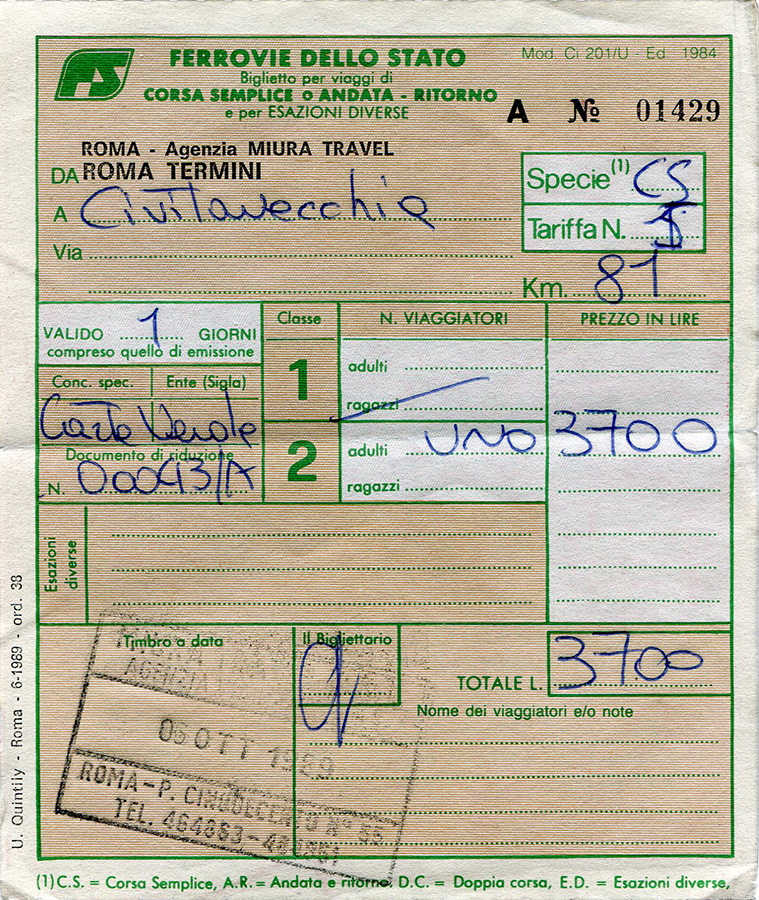 FS
FERROVIE DELLO STATO
Mod. Ci 201/U - Ed. 1984
Biglietto per viaggi di
CORSA SEMPLICE o ANDATA - RITORNO
e per ESAZIONI DIVERSE
A № 01429
ROMA - Agenzia MIURA TRAVEL
DA ROMA TERMINI
A Civitavecchia
Via
Specie (1) CS
Tariffa N.
Km. 81
VALIDO 1 GIORNI
compreso quello di emissione
Classe
N. VIAGGIATORI
PREZZO IN LIRE
Conc. spec.
Ente (Sigla)
Carte Verde
Documento di riduzione
N.
1
adulti
ragazzi
2
adulti UNO 3700
ragazzi
Esazioni
diverse
Timbro a data
Il Bigliettario
TOTALE L. 3700
Nome dei viaggiatori e/o note
AGENZIA
05 OTT 1989
ROMA - P. CINQUECENTO N° 55
TEL. 464853 -
U. Quintily - Roma - 6-1989 - ord. 38
(1) C.S. = Corsa Semplice, A.R. = Andata e ritorno, D.C. = Doppia corsa, E.D. = Esazioni diverse,